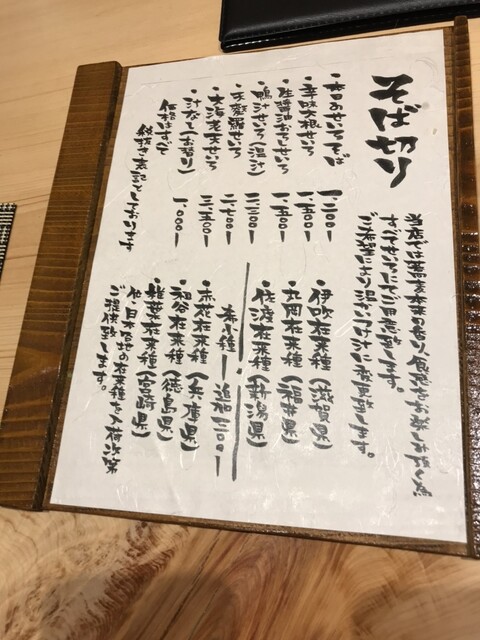 そば切り
当店では蕎麦本来の香り、食感をお楽しみ頂く為
すべてせいろにてご用意致します。
ご希望により温かい汁に変更致します。
・本日のせいろそば 一、二〇〇ー
・辛味大根せいろ 一、五〇〇ー
・生醤油おろしせいろ 一、五〇〇ー
・鴨汁せいろ(温汁) 二、二〇〇ー
・天麩羅せいろ 二、七〇〇ー
・大海老天せいろ 三、五〇〇ー
・汁なし(お替り) 一、〇〇〇ー
価格はすべて
税抜き表記としております
・伊吹在来種(滋賀県)
・丸岡在来種(福井県)
・佐渡在来種(新潟県)
希少種 ー 追加二〇〇ー
・赤花在来種(兵庫県)
・祖谷在来種(徳島県)
・椎葉在来種(宮崎県)
他・日本各地の在来種を入荷次第
ご提供致します。